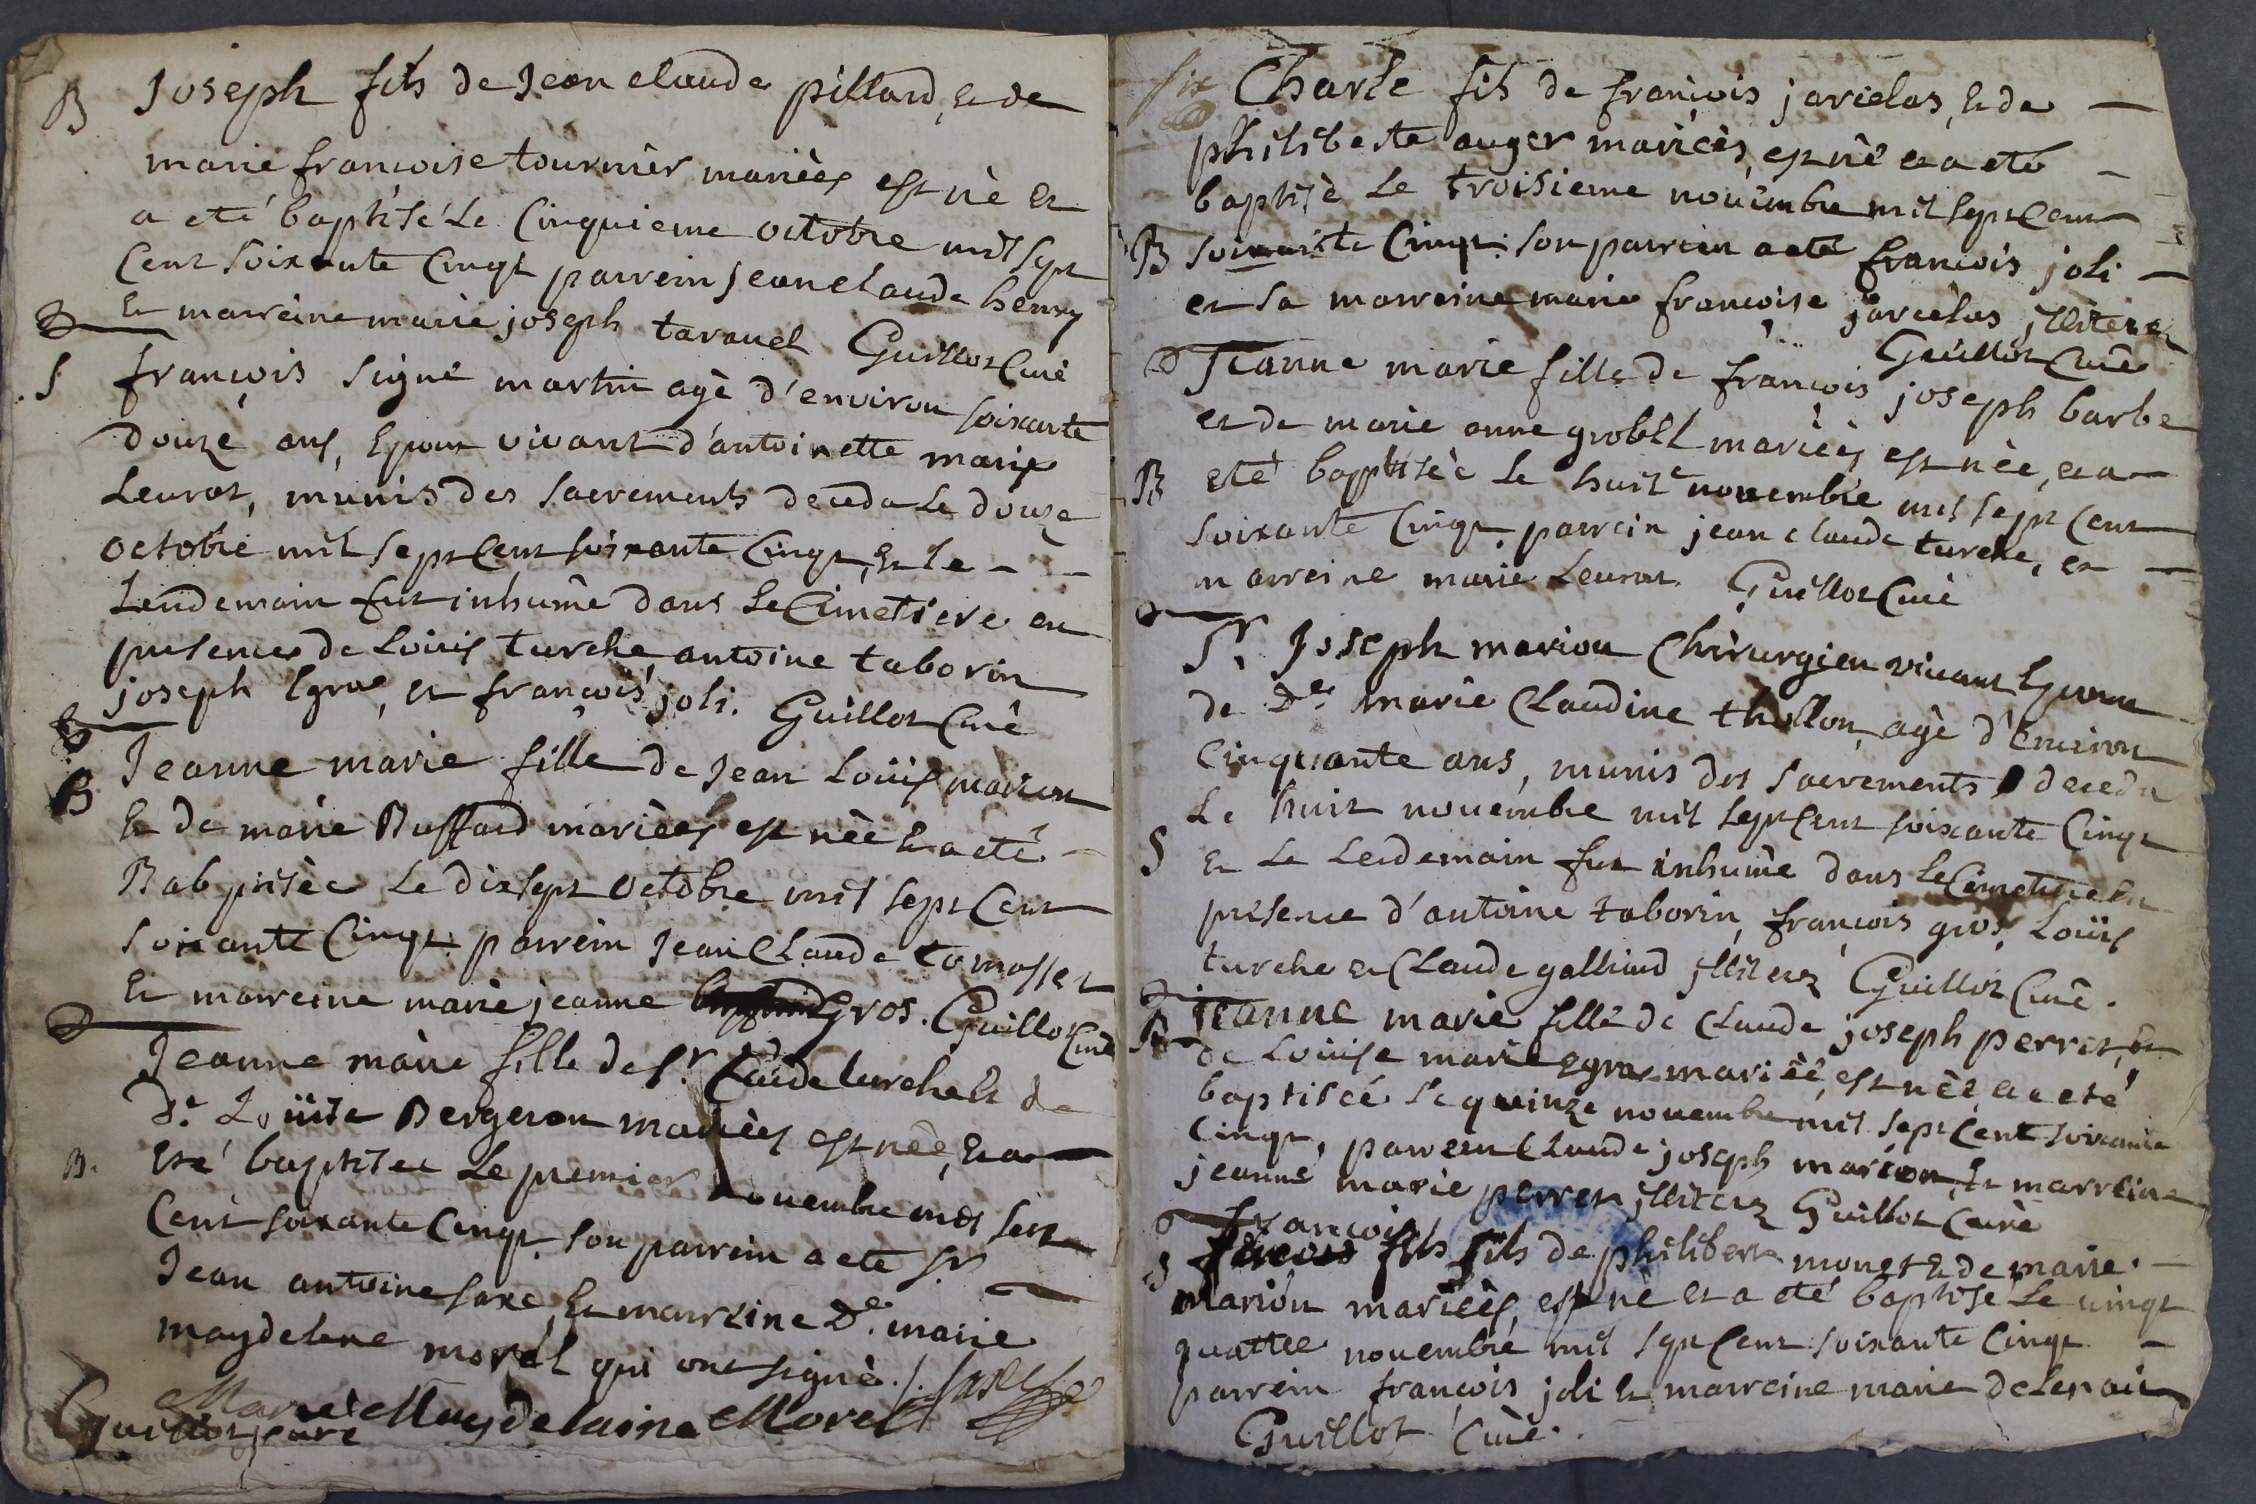 B Joseph fils de Jean claude pillard, et de
marie francoise tournier mariées est nè et
a eté baptisé Le Cinquieme octobre mil sept
Cent soixante Cinqt parrein jean claude henry
Et marreine marie joseph taravel Guillot Curé
S françois signé martin agè d'environ soixante
douze ans, Epoux vivant d'antoinette marie
Leurat, munis des sacrements deceda Le douze
octobre mil sept Cent soixante Cinqt, Et le
Lendemain fut inhumè dans Le Cimetiere en
presences de Louis turche, antoine taborin
joseph Egros, et françois joli. Guillot Curé
B Jeanne marie fille de Jean Loüis marion
Et de marie Buffard mariées est née Et a eté
Babptisèe Le dixsept octobre mil sept Cent
soixante Cinqt parrein Jean Claude tomasset
Et marreine marie jeanne Gros. Guillot Curé
Jeanne marie fille de Sr. Claude turche Et de
De. Loüise Bergeron mariées est nèe, Et a
B. Eté baptisee Le premier novembre mil sept
Cent soixante Cinqt. son parrein a eté Sr.
Jean antoine saxe, Et marreine De. marie
maydelene morel qui ont signè. J. Saxe
Marie Maydelaine Morel
Guillot Curé
six Charle fils de françois jarcelas, et de
philiberte auger mariées, est né et a eté
baptisè Le troisieme novembre mil sept Cent
B soixante Cinqt. son parrein a eté françois joli
et sa marreine marie françoise jarcelas jlliterez
Guillot Curé
Jeanne marie fille de françois joseph barbe
et de marie anne grobel mariées est nèe, et a
B eté bapptisèe Le huite novembre mil sept Cent
soixante Cinqt. parrein jean claude turche, et
marreine marie Leurat. Guillot Curé
Sr. Joseph marion Chirurgien vivant Epoux
de De. marie Claudine thollon, agè d'Environ
Cinquante ans, munis des sacrements deceda
Le huit novembre mil sept Cent soixante Cinqt
S Et Le Lendemain fut inhumè dans Le Cimetiere en
presence d'antoine taborin, françois gros, Loüis
turche et Claude galliard jlliterez Guillot Curé.
Jeanne marie fille de Claude joseph perret, et
B de Loüise marie Egros mariéè, est nèe et a eté
baptiseé Le quinze novembre mil sept Cent soixante
Cinqt, parrein Claude joseph marion, Et marreine
jeanne marie perret jlliterez Guillot Curè
françois
fils fils de philibert monet Et de marie
B marion mariées, est nè et a eté baptisé Le vingt
quattre novembre mil sept Cent soixante Cinqt
parrein françois joli Et marreine marie
Guillot Curè.